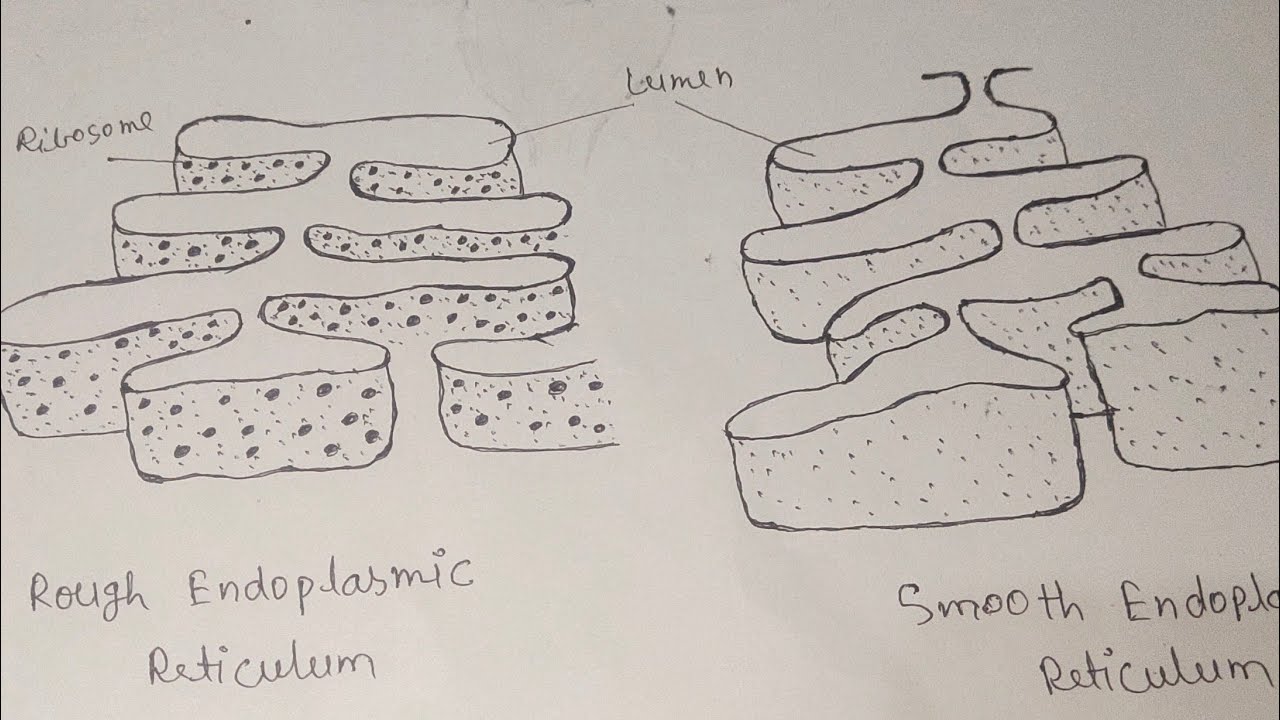 Lumen
Ribosome
Rough Endoplasmic
Reticulum
Smooth Endopla
Reticulum